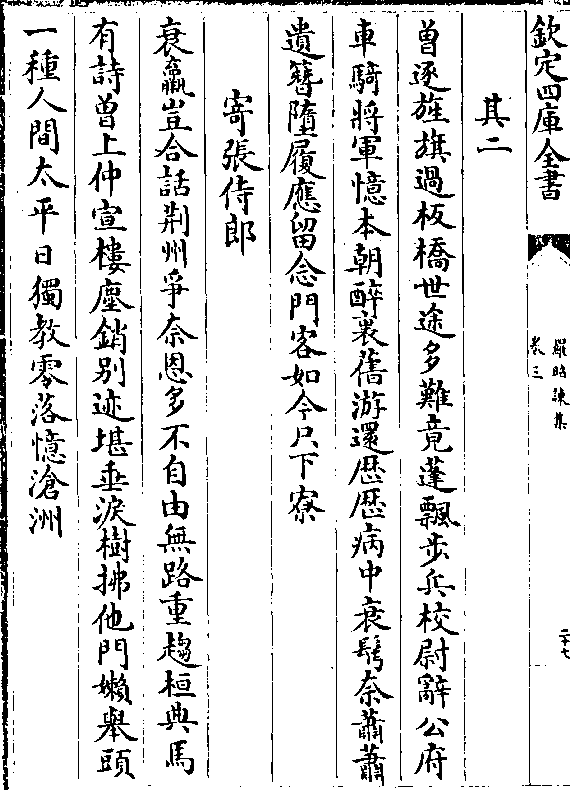 欽定四庫全書
羅昭諫集
卷三
二十七
其二
曽逐旌旗過板橋世途多難竟蓬飄步兵校尉辭公府
車騎將軍憶本朝醉裏舊游還歴歴病中衰鬢奈蕭蕭
遺簪墮履應留念門客如今只下寮
寄張侍郎
衰羸豈合話荆州爭奈恩多不自由無路重趨桓典馬
有詩曽上仲宣樓塵銷别迹堪垂淚樹拂他門嬾舉頭
一種人間太平日獨教零落憶滄洲